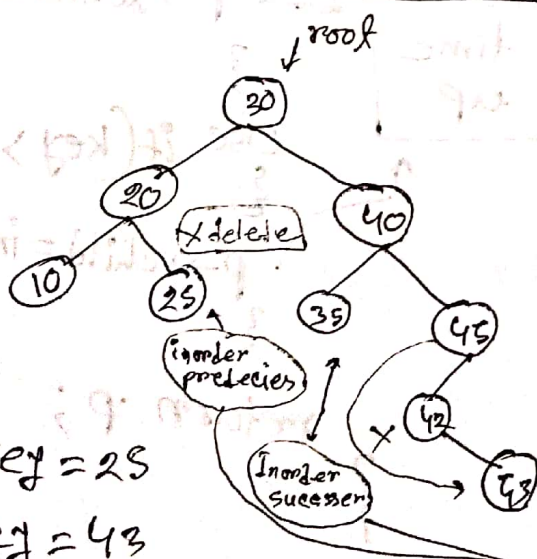 root
30
20
40
X delete
10
25
35
45
inorder
predecies
42
43
Inorder
sucesser
X
ey = 25
ey = 43